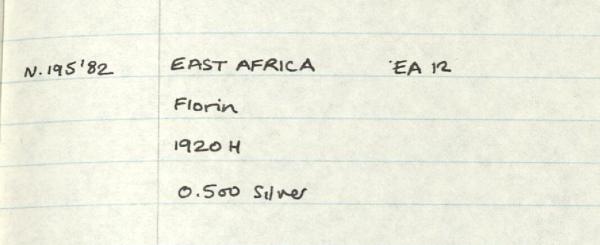 N.195'82 EAST AFRICA EA 12
Florin
1920 H
0.500 Silver